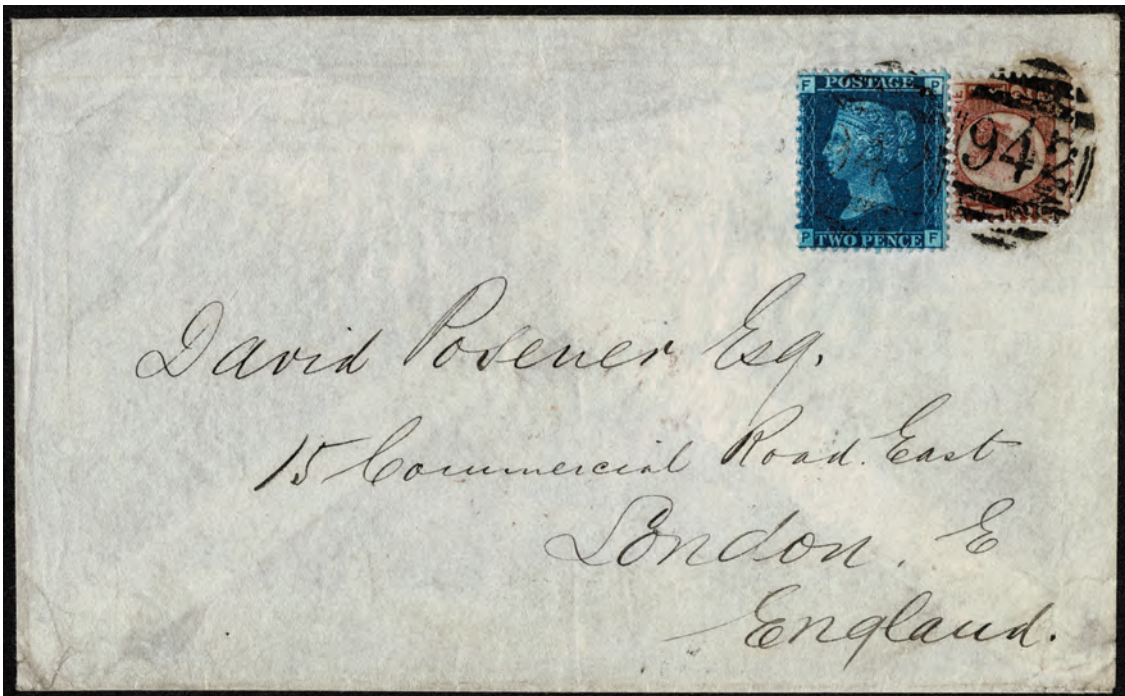 F POSTAGE P
P TWO PENCE F
942
David Posener Esq.
15 Commercial Road. East
London. E
England.